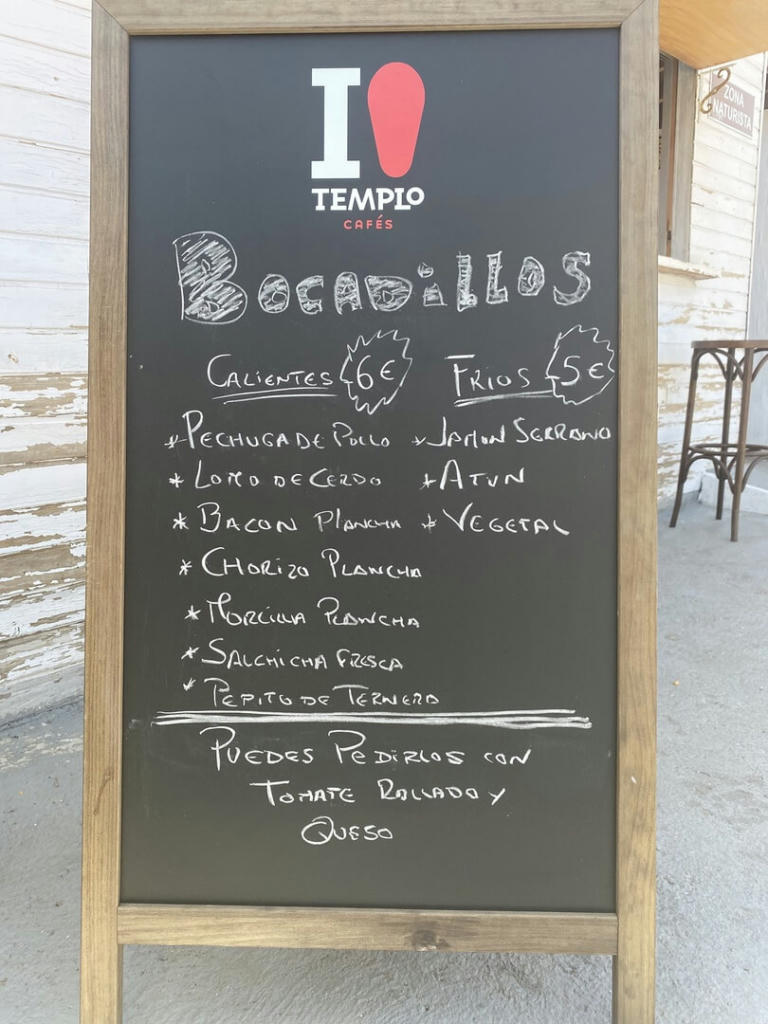 I
TEMPLO
CAFÉS
ZONA
NATURISTA
BOCADiLLOS
CALIENTES 6€
FRIOS 5€
* PECHUGA DE POLLO
* LOMO DE CERDO
* BACON PLANCHA
* CHORIZO PLANCHA
* MORCILLA PLANCHA
* SALCHICHA FRESCA
* PEPITO DE TERNERA
* JAMON SERRANO
* ATUN
* VEGETAL
PUEDES PEDIRLOS CON
TOMATE RALLADO Y
QUESO